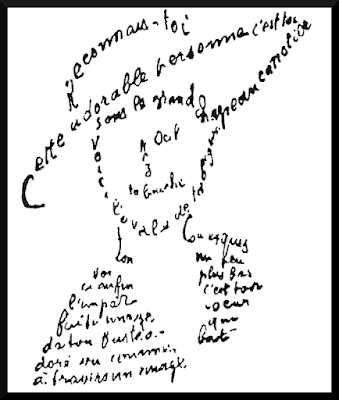 Reconnais-toi
Cette adorable personne c'est toi
Sous le grand chapeau canotier
Oeil
Nez
La bouche
Voici l'ovale de ta figure
Ton
Cou exquis
Voi
ci enfin
l'impar
faite image
de ton buste a
doré vu comme
à travers un nuage
un peu
plus bas
c'est ton
coeur
qui
bat